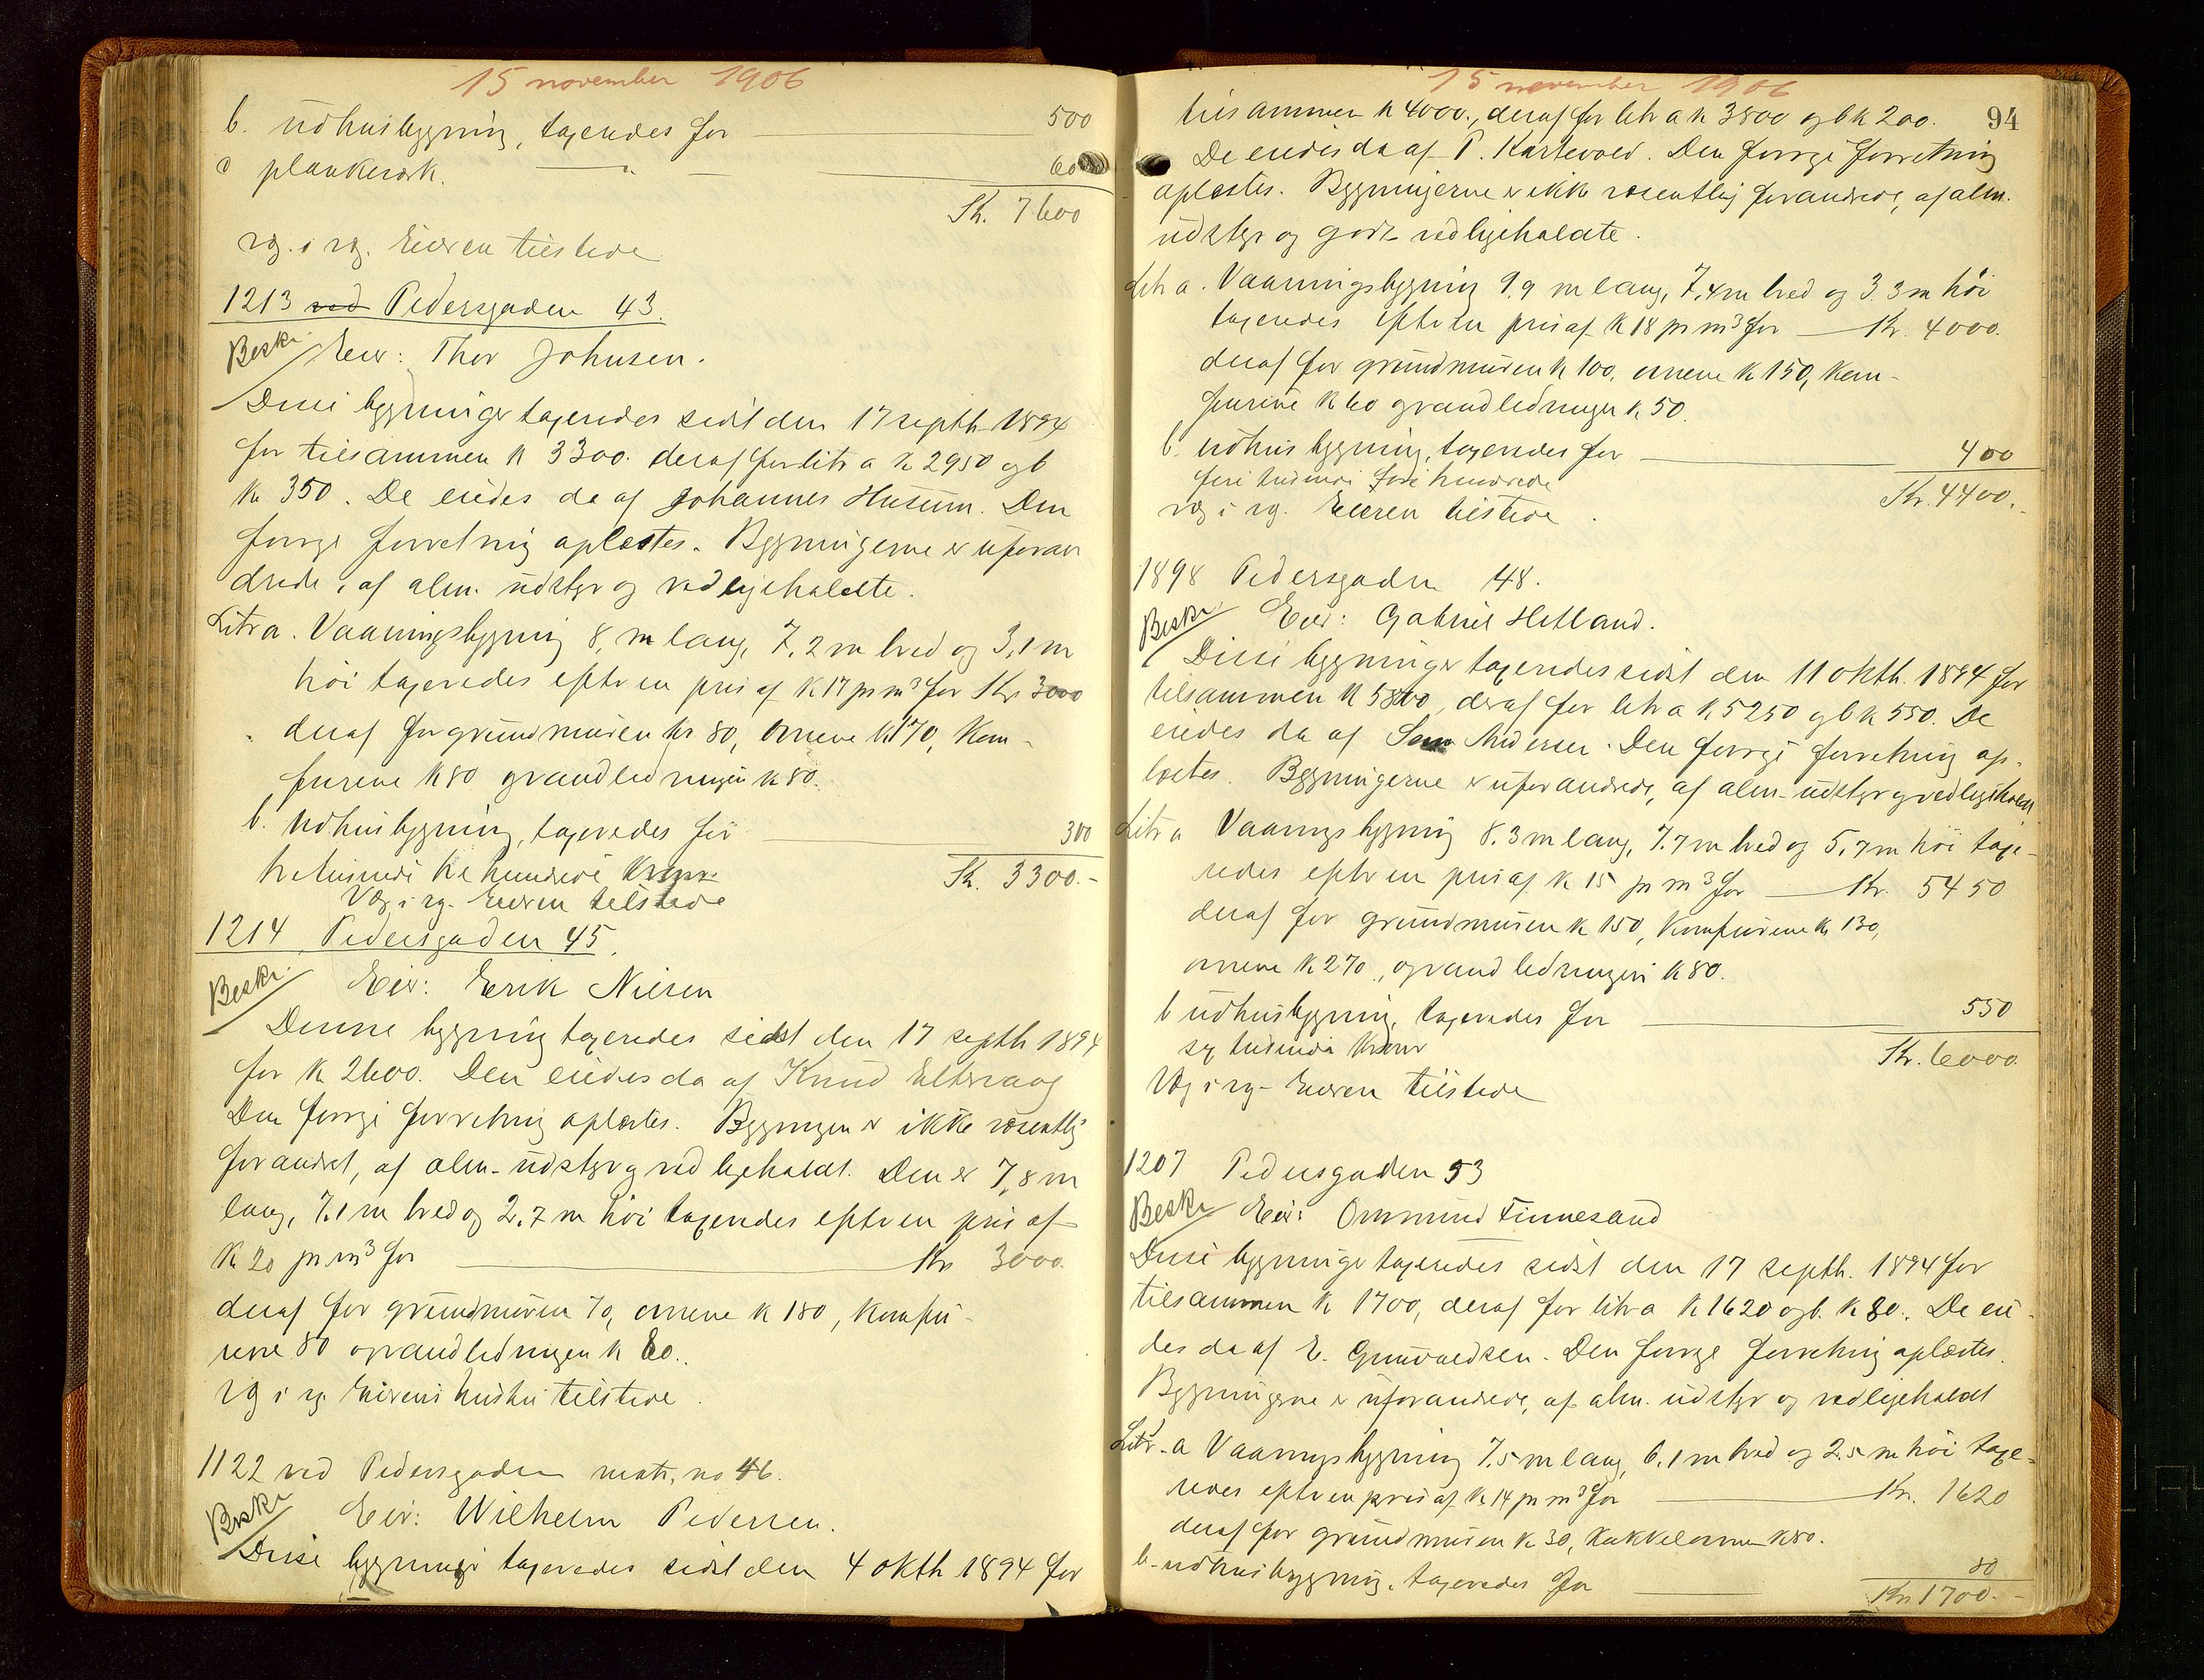 15 november 1906
b. udhusbygning, taxeredes for 500
c plankeværk. " 60
Kr. 7600
Eieren tilstede
1213 ved Pedersgaden 43.
Beskr. Eier: Thor Johnsen.
Disse bygninger taxeredes sidst den 17 septb 1894
for tilsammen k 3300. deraf for litr a k 2950 og b
k 350. De eiedes da af Johannes Husum. Den
forrige forretning oplæstes. Bygningerne er uforan
drede, af alm. udstyr og vedligeholdte.
Litr a. Vaaningsbygning 8, m lang, 7,2 m bred og 3,1 m
höi taxeredes efter en pris af k 17 pr m³ for Kr 3000
deraf for grundmuren kr 80, ovnene k 170, Kom-
furene k 80 og vandledningen k 80.
b. Udhusbygning, taxeredes for 300
tretusinde tre hundrede Kroner Kr. 3300.-
Vg. i rg. Eieren tilstede
1214 Pedersgaden 45.
Beskr. Eier: Erik Nilsen
Denne bygning taxeredes sidst den 17 septb 1894
for k 2600. Den eiedes da af Knud
Den forrige forretning oplæstes. Bygningen er ikke væsentlig
forandret, af alm. udstyr og vedligeholdt. Den er 7,8 m
lang, 7,1 m bred og 2,7 m höi taxeredes efter en pris af
K 20 pr m³ for Kr 3000.
deraf for grundmuren 70, ovnene k 180, komfu-
rene 80 og vandledningen k 60.
Vg i rg. Eierens hustru tilstede.
1122 ved Pedersgaden matr. no 46.
Beskr Eier: Wilhelm Pedersen.
Disse bygninger taxeredes sidst den 4 oktb 1894 for
15 november 1906
94
tilsammen k 4000., deraf for litr a k 3800 og b k 200.
De eiedes da af P. Kartevold. Den forrige forretning
oplæstes. Bygningerne er ikke væsentlig forandrede, af alm.
udstyr og godt vedligeholdte.
Litr a. Vaaningsbygning 9,9 m lang, 7,4 m bred og 3,3 m höi
taxeredes efter en pris af k 18 pr m³ for Kr. 4000.
deraf for grundmuren k 100, ovnene k 150, Kom-
furene k 60 og vandledningen k 50.
b. udhusbygning, taxeredes for 400
fire tusinde fire hundrede Kr. 4400.-
Vg i rg. Eieren tilstede.
1898 Pedersgaden 48.
Beskr. Eier: Gabriel Hetland.
Disse bygninger taxeredes sidst den 11 oktb. 1894 for
tilsammen k 5800, deraf for litr a k 5250 og b k 550. De
eiedes da af Andersen. Den forrige forretning op-
læstes. Bygningerne er uforandrede, af alm. udstyr og vedligeholdt
Litr a Vaaningsbygning 8.3 m lang, 7.7 m bred og 5,7 m höi taxe-
redes efter en pris af k 15 pr m³ for Kr. 5450
deraf for grundmuren k 150, Komfurene k 130,
ovnene k 270, og vandledningen k 80.
b udhusbygning, taxeredes for 550
sex tusinde Kroner Kr. 6000.
Vg i rg. Eieren tilstede
1207 Pedersgaden 53
Beskr Eier: Ommund Finnesand
Disse bygninger taxeredes sidst den 17 septb. 1894 for
tilsammen k 1700, deraf for litr a k 1620 og b. k 80. De eie-
des da af E. Gunvaldsen. Den forrige forretning oplæstes.
Bygningerne er uforandrede, af alm. udstyr og vedligeholdt
Litr. a Vaaningsbygning 7.5 m lang, 6,1 m bred og 2,5 m höi taxe-
redes efter en pris af k 14 pr m³ for Kr. 1620
deraf for grundmuren k 30, Kakkelovnen k 80.
b. udhusbygning, taxeredes for 80
Kr 1700.-